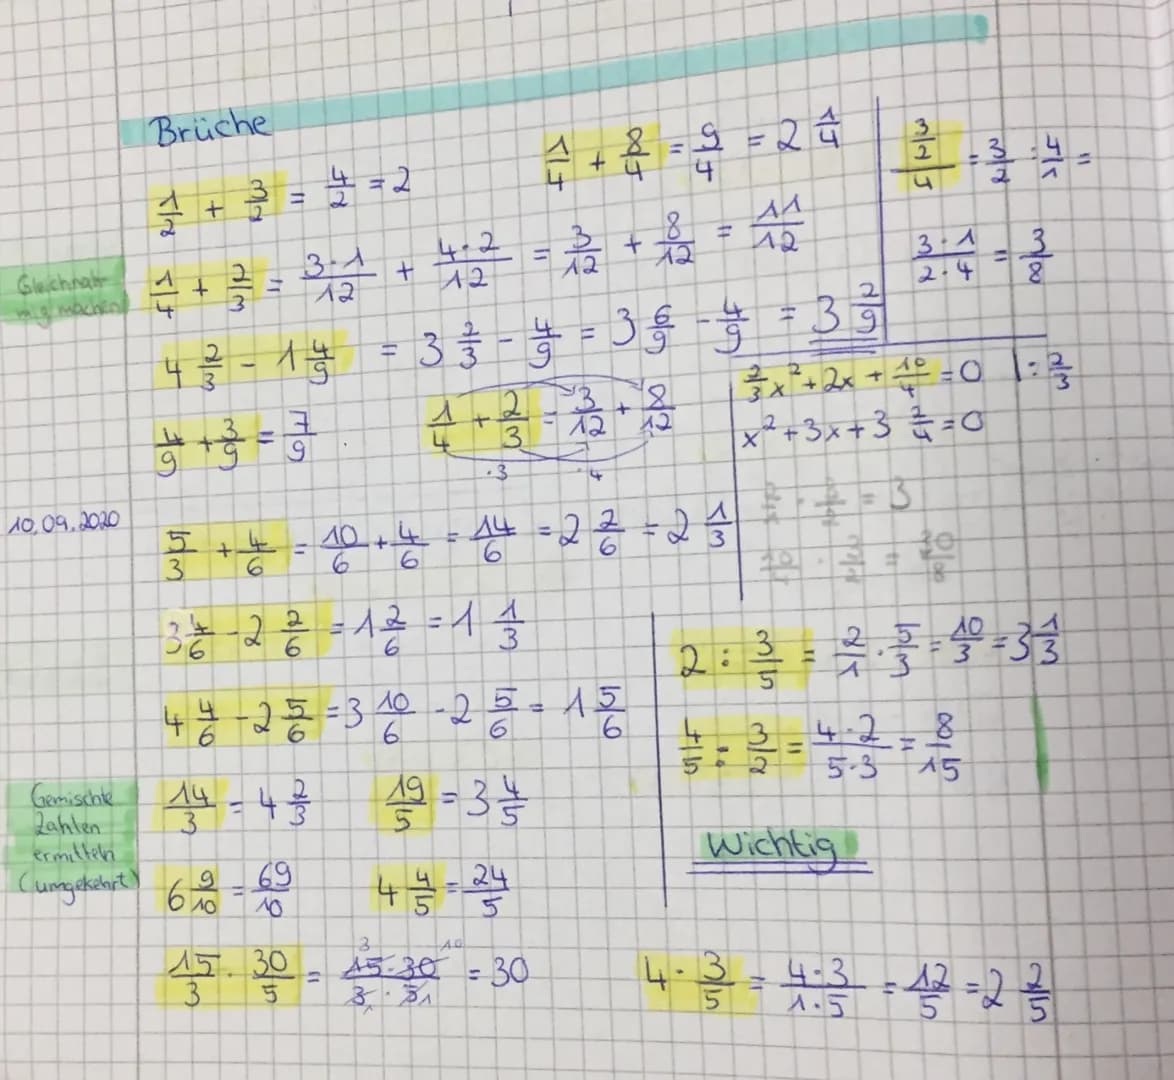 Brüche
1/2 + 3/2 = 4/2 = 2
1/4 + 8/4 = 9/4 = 2 1/4
(3/2)/4 = 3/2 : 4/1 =
3·1/2·4 = 3/8
Gleichnami
m.g machen
1/4 + 2/3 = 3·1/12 + 4·2/12 = 3/12 + 8/12 = 11/12
4 2/3 - 1 4/9 = 3 2/3 - 4/9 = 3 6/9 - 4/9 = 3 2/9
4/9 + 3/9 = 7/9
1/4 + 2/3 = 3/12 + 8/12
·3 ·4
2/3 x² + 2x + 10/4 = 0 | : 2/3
x² + 3x + 3 2/4 = 0
= 3
10.09.2020
5/3 + 4/6 = 10/6 + 4/6 = 14/6 = 2 2/6 = 2 1/3
3 4/6 - 2 2/6 = 1 2/6 = 1 1/3
4 4/6 - 2 5/6 = 3 10/6 - 2 5/6 = 1 5/6
2 : 3/5 = 2/1 · 5/3 = 10/3 = 3 1/3
4/5 : 3/2 = 4·2/5·3 = 8/15
Gemischte
Zahlen
ermitteln
(umgekehrt)
14/3 = 4 2/3
19/5 = 3 4/5
6 9/10 = 69/10
4 4/5 = 24/5
Wichtig
15/3 · 30/5 = 15·30/3·5 = 30
3 10
1 1
4 · 3/5 = 4·3/1·5 = 12/5 = 2 2/5